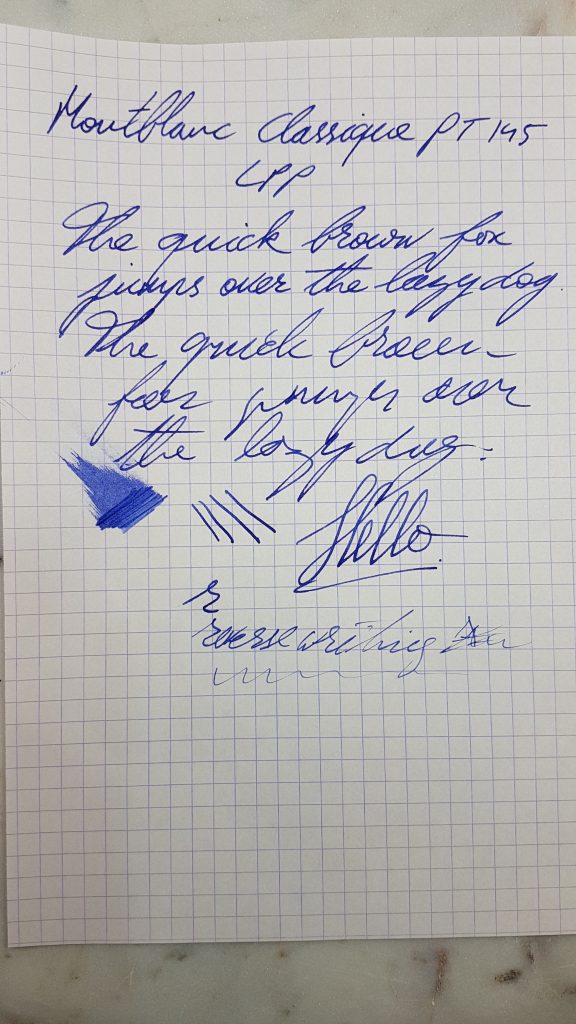 Montblanc Classique PT 145
LPP
The quick brown fox
jumps over the lazy dog.
The quick brown
fox jumps over
the lazy dog.
Hello
r
reverse writing